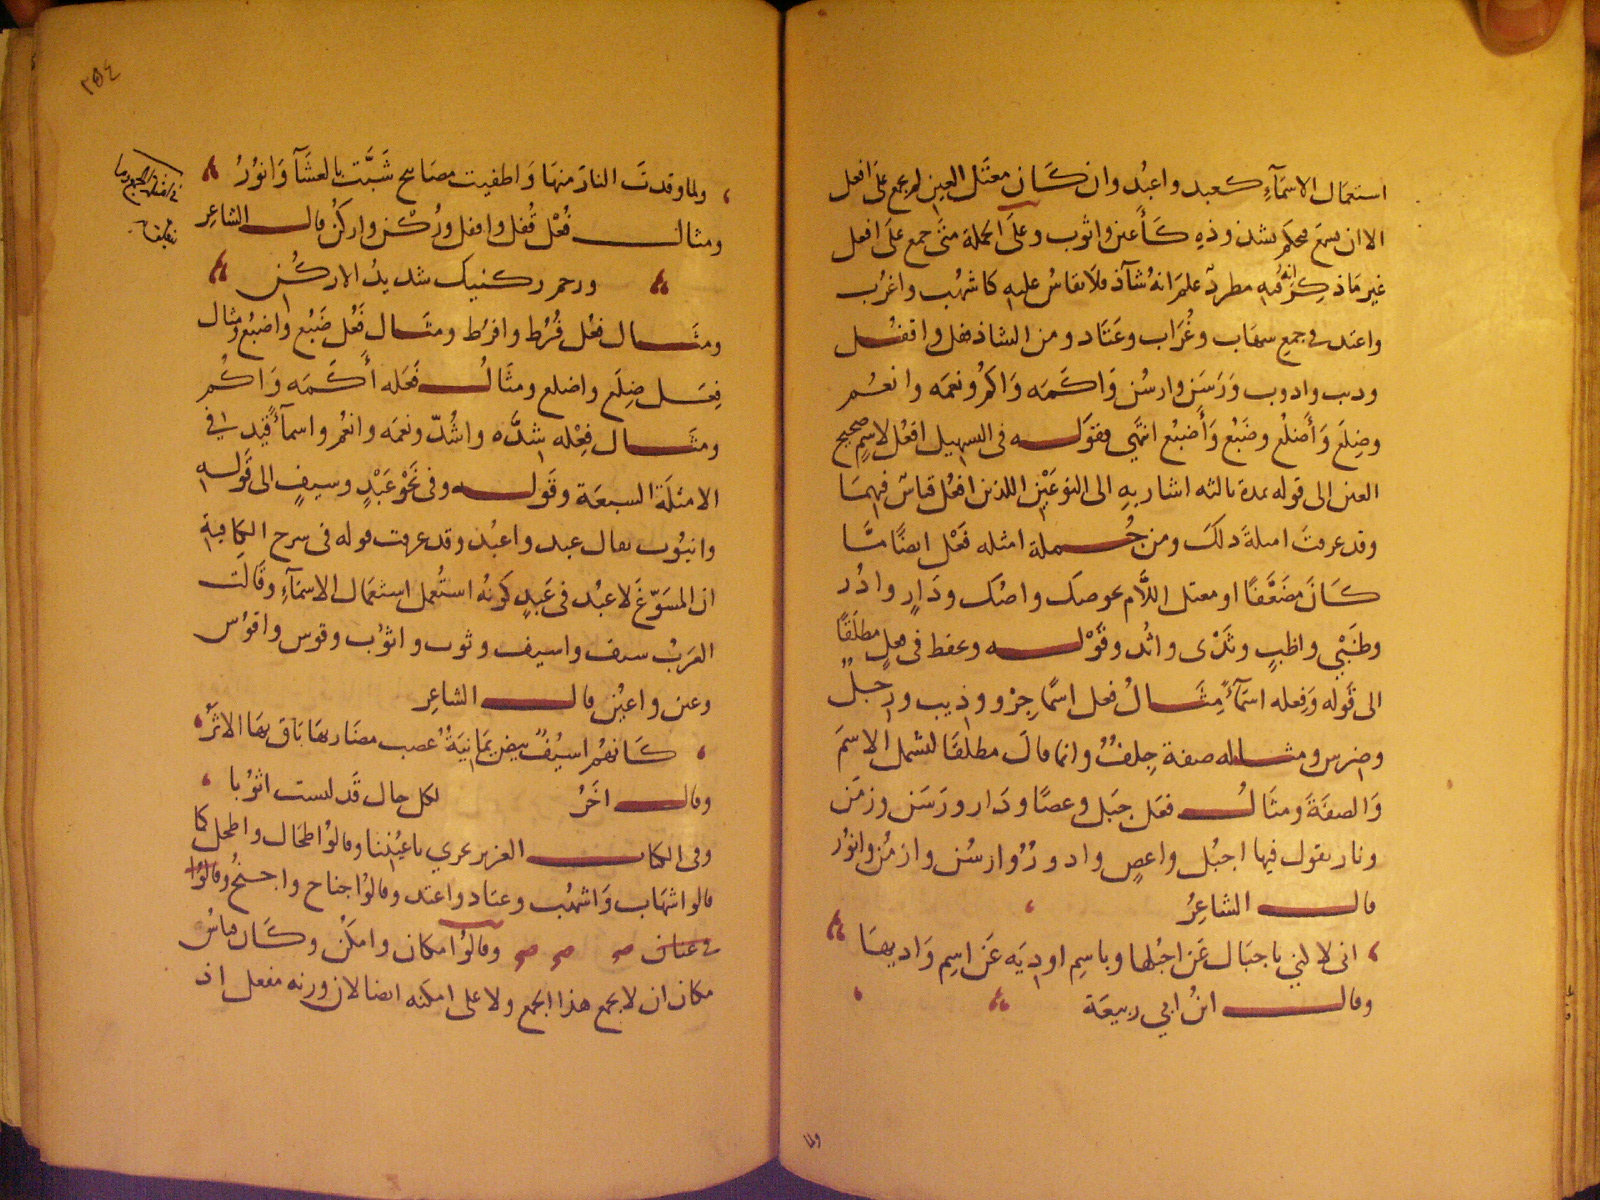 استعمال الاسمآء كعبد واعبُد وان كَان معتَل العين لم يجمع عَلى افعل
الا ان يسمع فيحكم بشذوذه كَأعين واثوب وعلَى الجملة متَى جمع علَى افعل
غير مَا ذكِرَ انه فيه مطرد علم انهُ شآذ فلا يقاسُ عليه كاشهُب واغرُب
واعتد في جمع شهاب وغُرَاب وعَتَاد ومن الشاذ قفل واقفُل
وذيب واذوب وَرَسَن وارسُن وَاكَمَه وَاكم ونعمَه وانعُم
وضِلَع وَأَضلُع وضَبُع وَأَضبُع انتهَي فقوله في التسهيل افعُل لاسم صحيح
العين الى قوله بمدة ثالثه اشار به الى النوعَيْن اللذين افعُل قياسٌ فيهمَا
وقد عرفتَ امثلةَ ذلكَ ومن جُملة امثله فَعْل ايضًا مَا
كَانَ مُضَعَّفًا او معتل اللَّام نحو صك واصُك ودَارٍ وادُر
وظَبْي واظبٍ وثَدْى واثُد وقَوْله وتحفظ في فعلٍ مطلقًا
الى قَوله وَفِعله اسمآءً مِثَالُ فِعل اسمًا جِرْو وذيب ورِجلٌ
وضِرس ومثاله صفة جِلفٌ وانما قالَ مطلقًا ليشمل الاسمَ
وَالصفَةَ ومثَالُ فعَل جبَل وعصًا ودَار ورَسَن وزمَن
ونار يقول فيها اجبُل واعصٍ وادورُ وارسُن وازمُن وانوُر
قال الشاعِرُ
انى لاكني باجبَال عَن اجبُلها وباسمِ اوديَه عَن اسِم وَاديهَا
وقال ابنُ ابي ربيعَة
ولما
٣٥٤
ولما وقدتَ النارَ منهَا وَاطفيت مصَابيح شَبَّت بالعشَآ وَانوُرُ
ومثال فُعْل قُفل واقفل ورُكْن واركُن قال الشاعِر
وزحم ركنيك شديدُ الاركُن
ومثَال فعُل قُرُط واقرُط ومثَال فَعُل ضَبُع واضبُع ومثال
فِعَل ضِلَع واضلع ومثَالُ فَعَله أَكَمَه وَاكُم
ومثَال فِعْله شدَّه واشُدّ ونعمَه وانعُم واسمآءً قيد في
الامثلَة السبعَة وقَوله وفى نَحْو عَبْدٍ وسيفٍ الى قَوله
وانيُوب يقال عبد واعبُد وقد عرفت قوله فى شرح الكافية
ان المسَوّغَ لاعبُد فى عَبدٍ كَونُه استُعمل استعمَال الاسمَآءِ وقَالَت
العَرَبُ سيف واسيف وثوب واثوُب وقوس واقوُس
وعين واعيُن قال الشاعِر
كَانهُم اسيُفٌ بيض يَمَانيَةٌ عصب مضَاربهَا بَاق بهَا الاثَرُ
وقال اخَرُ لكل حال قَد لبست اثوُبا
وفى الكتاب العزيز تجري باعيُننا وقالوُا طحَال واطحل كما
قالوا شهَاب وَاشهُب وعتاد واعتد وقالوُا جناح واجنحُ وقالوُا
في عناق وقالوُا مكان وامكُن وكَان قياسُ
مكان ان لا يجمع هذا الجمع ولا على امكنه ايضا لان وزنه مفعل اذ